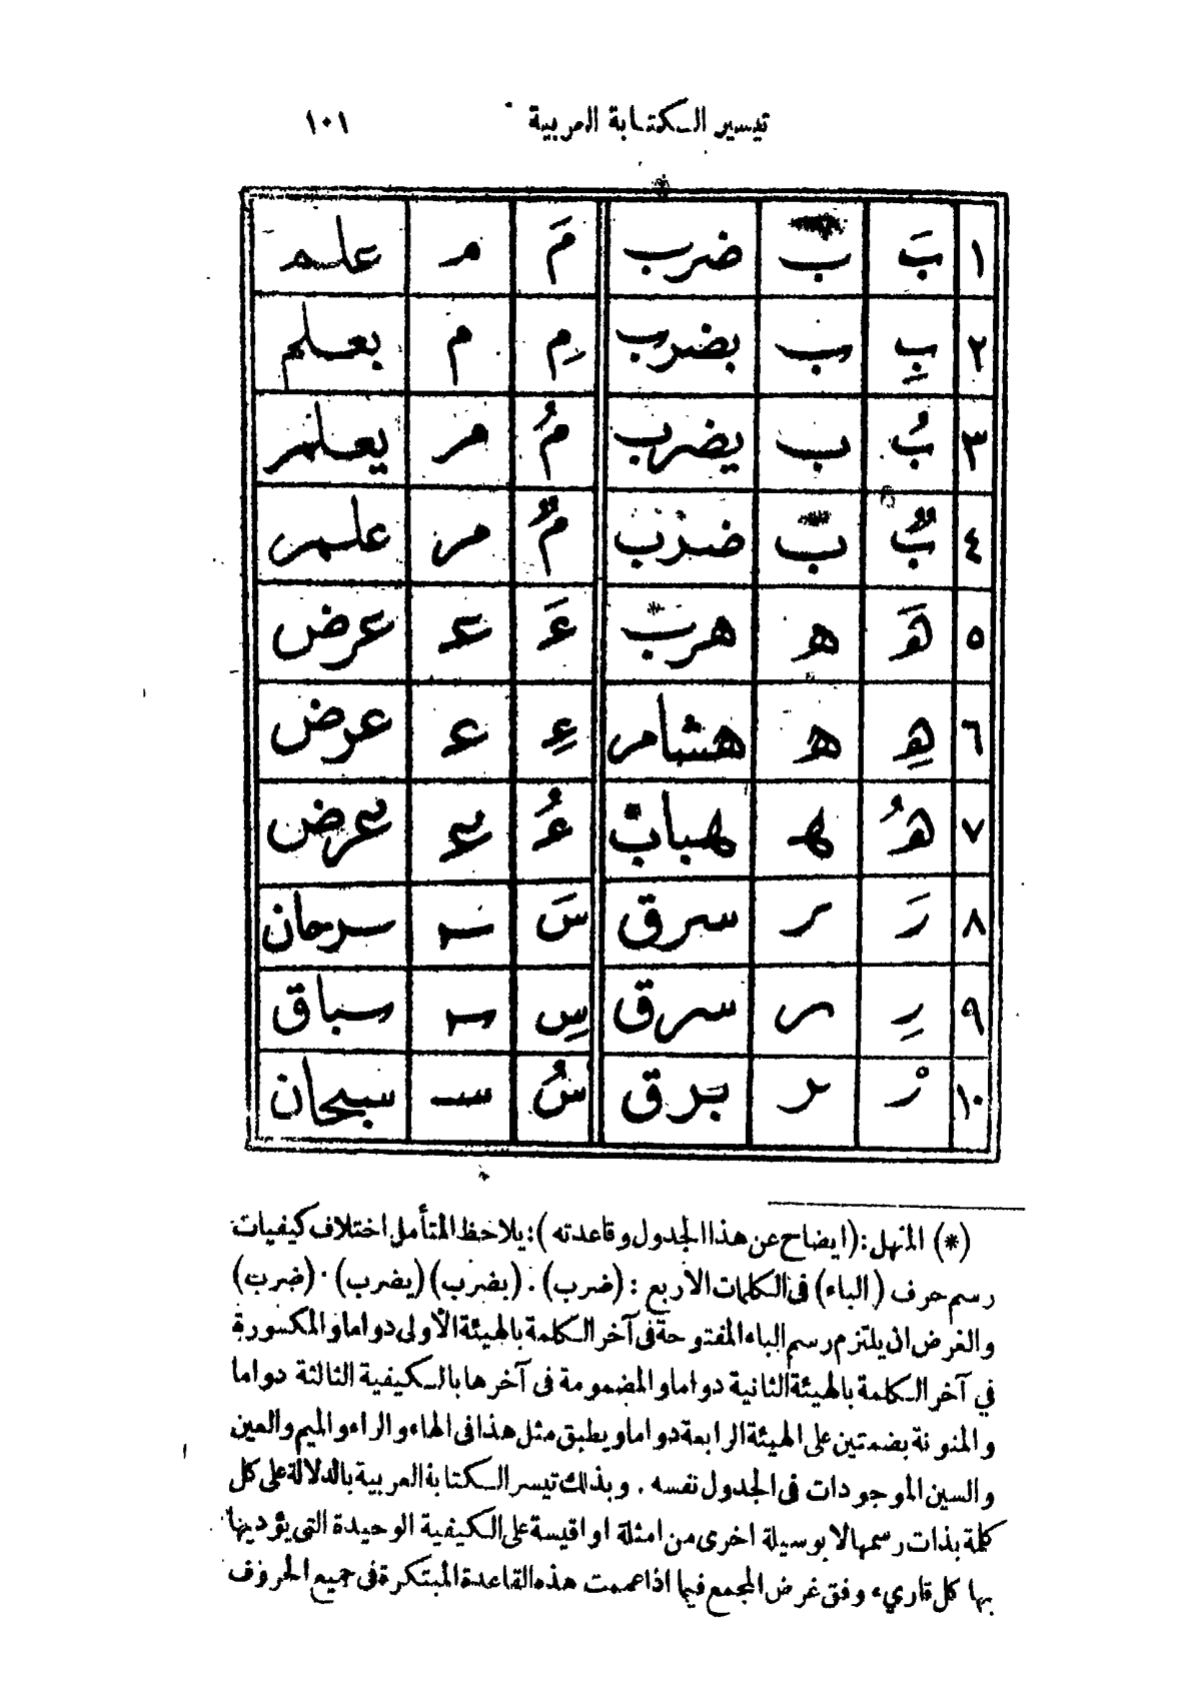 تيسير الكتابة العربية ١٠١
١ بَ ب ضرب مَ م علم
٢ بِ ب بضرب مِ م بعلم
٣ بُ ب يضرب مُ م يعلم
٤ بٌ ب ضرب مٌ م علم
٥ هَ ه هرب عَ ع عرض
٦ هِ ه هشام عِ ع عرض
٧ هُ ه هباب عُ ع عرض
٨ رَ ر سرق سَ س سرحان
٩ رِ ر سرق سِ س سباق
١٠ رْ ر برق سُ س سبحان
(*) المنهل : (ايضاح عن هذا الجدول وقاعدته) : يلاحظ المتأمل اختلاف كيفيات
رسم حرف (الباء) في الكلمات الأربع : (ضرب) . (بضرب) (يضرب) . (ضرب)
والغرض ان يلتزم رسم الباء المفتوحة في آخر الكلمة بالهيئة الأولى دواما والمكسورة
في آخر الكلمة بالهيئة الثانية دواما والمضمومة في آخرها بالكيفية الثالثة دواما
والمنونة بضمتين على الهيئة الرابعة دواما ويطبق مثل هذا في الهاء والراء والميم والعين
والسين الموجودات في الجدول نفسه . وبذلك تيسر الكتابة العربية بالدلالة على كل
كلمة بذات رسمها لا بوسيلة اخرى من امثلة او اقيسة على الكيفية الوحيدة التي يؤديها
بها كل قاريء وفق غرض المجمع فيما اذا عممت هذه القاعدة المبتكرة في جميع الحروف